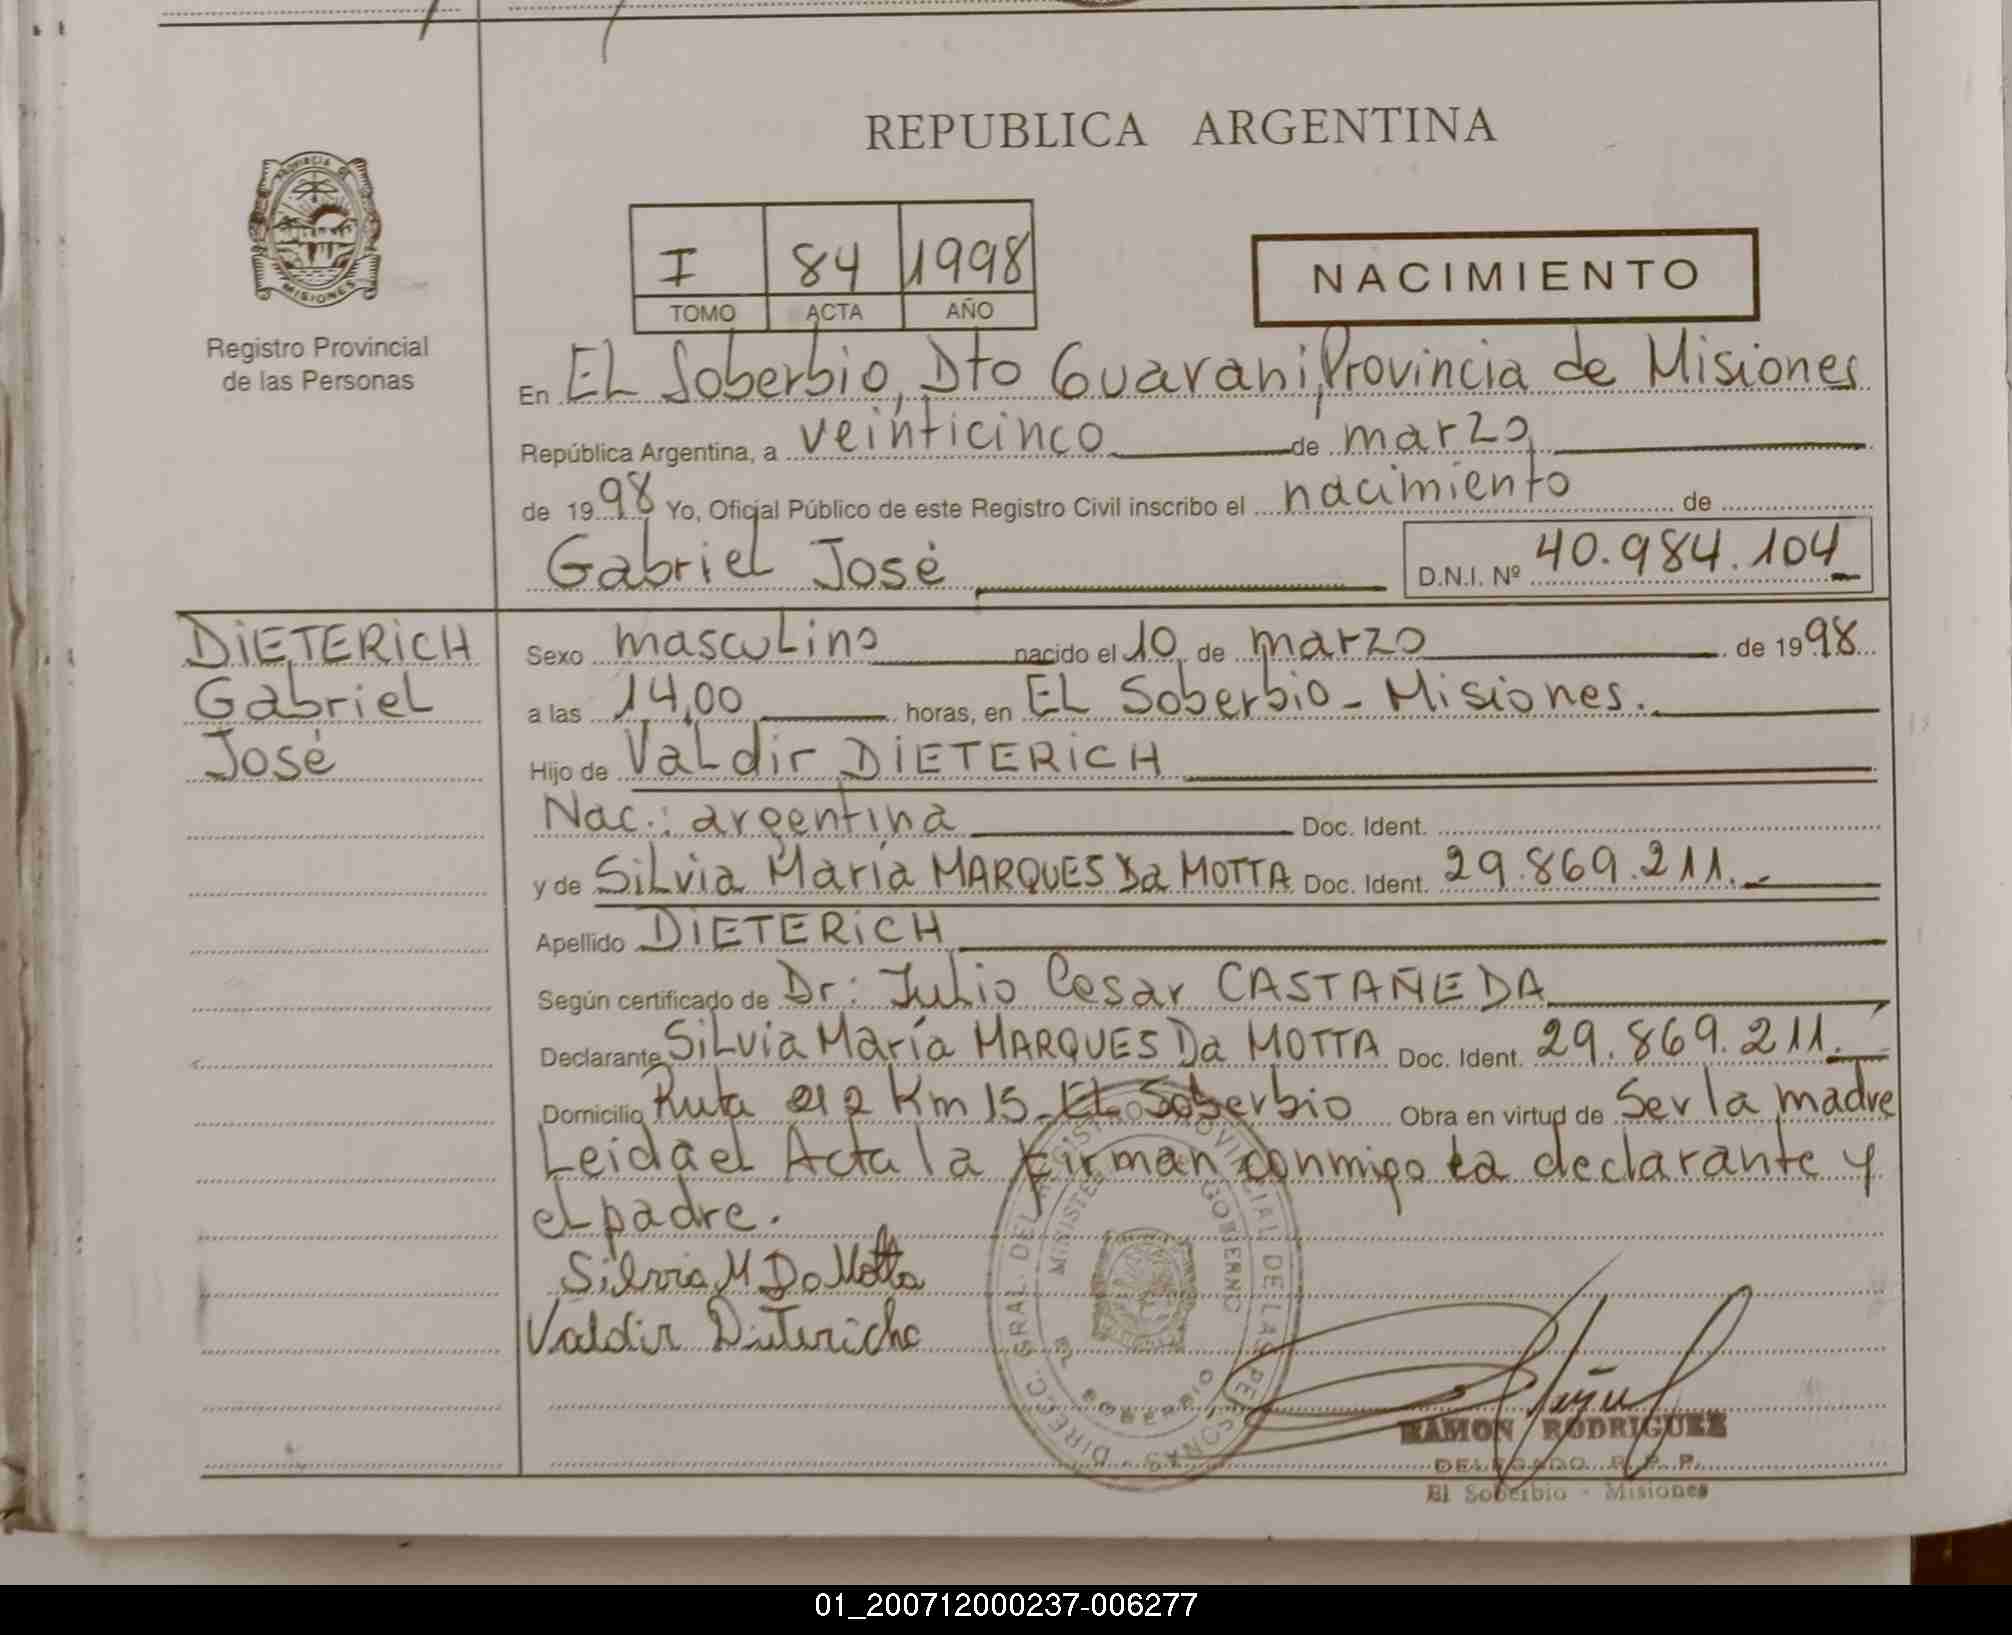 REPUBLICA ARGENTINA
PROVINCIA DE
MISIONES
Registro Provincial
de las Personas
I 84 1998
TOMO ACTA AÑO
NACIMIENTO
En EL Soberbio, Dto Guarani, Provincia de Misiones
República Argentina, a veinticinco de marzo
de 1998 Yo, Oficial Público de este Registro Civil inscribo el nacimiento de
Gabriel José D.N.I. Nº 40.984.104
DIETERICH
Gabriel
José
Sexo masculino nacido el 10 de marzo de 1998
a las 14,00 horas, en EL Soberbio - Misiones.
Hijo de Valdir DIETERICH
Nac.: argentina Doc. Ident.
y de Silvia María MARQUES Da MOTTA Doc. Ident. 29.869.211.-
Apellido DIETERICH
Según certificado de Dr: Julio Cesar CASTAÑEDA
Declarante Silvia María MARQUES Da MOTTA Doc. Ident. 29.869.211.-
Domicilio Ruta 212 Km 15 - EL Soberbio Obra en virtud de Ser la madre
Leida el Acta la firman conmigo la declarante y
el padre.
Silvia M Da Motta
Valdir Dieteriche
DIRECC. GRAL. DEL REGISTRO PROVINCIAL DE LAS PERSONAS
MINISTERIO GOBIERNO
SOBERBIO
RAMON RODRIGUEZ
DELEGADO R. P. P.
El Soberbio - Misiones
01_200712000237-006277